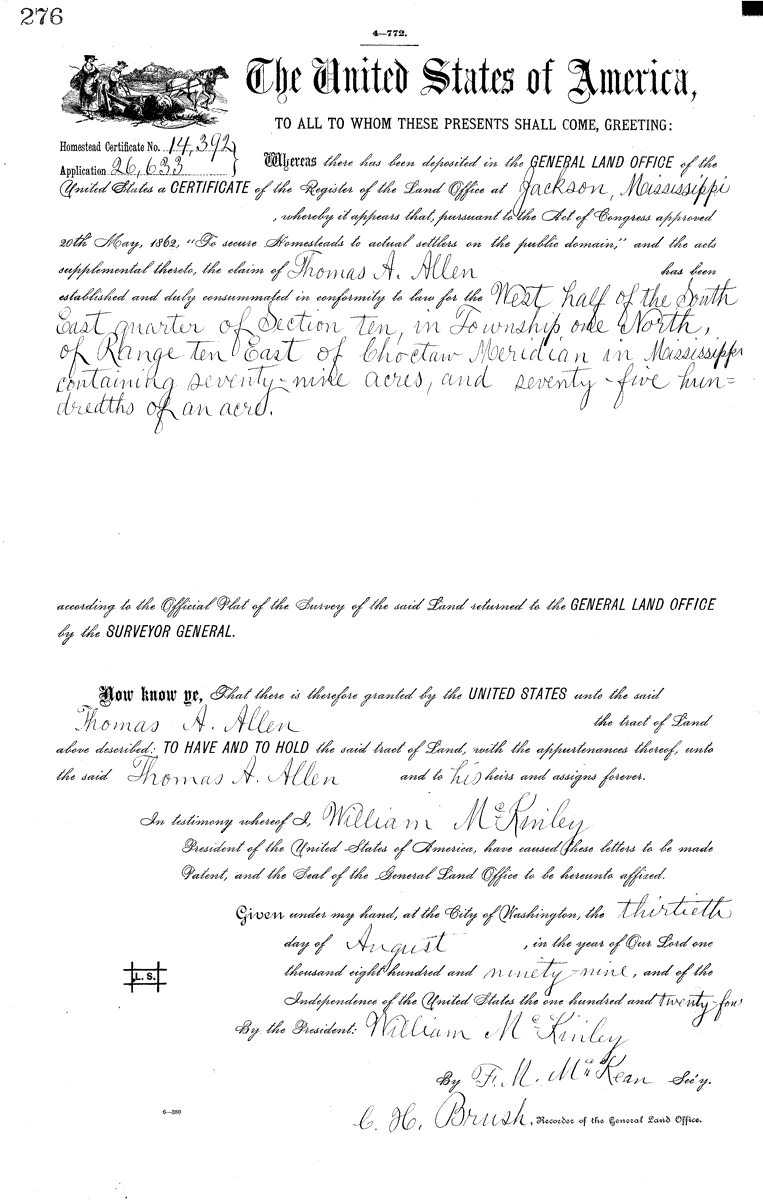 276
4—772.
The United States of America,
TO ALL TO WHOM THESE PRESENTS SHALL COME, GREETING:
Homestead Certificate No. 14,392
Application 26,633
Whereas there has been deposited in the GENERAL LAND OFFICE of the
United States a CERTIFICATE of the Register of the Land Office at Jackson, Mississippi
, whereby it appears that, pursuant to the Act of Congress approved
20th May, 1862, "To secure Homesteads to actual settlers on the public domain," and the acts
supplemental thereto, the claim of Thomas A. Allen has been
established and duly consummated in conformity to law for the West half of the South
East quarter of Section ten, in Township one North,
of Range ten East of Choctaw Meridian in Mississippi
containing seventy-nine acres, and seventy-five hun=
dredths of an acre.
according to the Official Plat of the Survey of the said Land returned to the GENERAL LAND OFFICE
by the SURVEYOR GENERAL.
Now know ye, That there is therefore granted by the UNITED STATES unto the said
Thomas A. Allen the tract of Land
above described: TO HAVE AND TO HOLD the said tract of Land, with the appurtenances thereof, unto
the said Thomas A. Allen and to his heirs and assigns forever.
In testimony whereof I, William McKinley
President of the United States of America, have caused these letters to be made
Patent, and the Seal of the General Land Office to be hereunto affixed.
Given under my hand, at the City of Washington, the thirtieth
day of August , in the year of Our Lord one
thousand eight hundred and ninety-nine, and of the
Independence of the United States the one hundred and twenty-four
L. S.
By the President: William McKinley
By F. M. McKean Sec'y.
C. H. Brush, Recorder of the General Land Office.
6—380